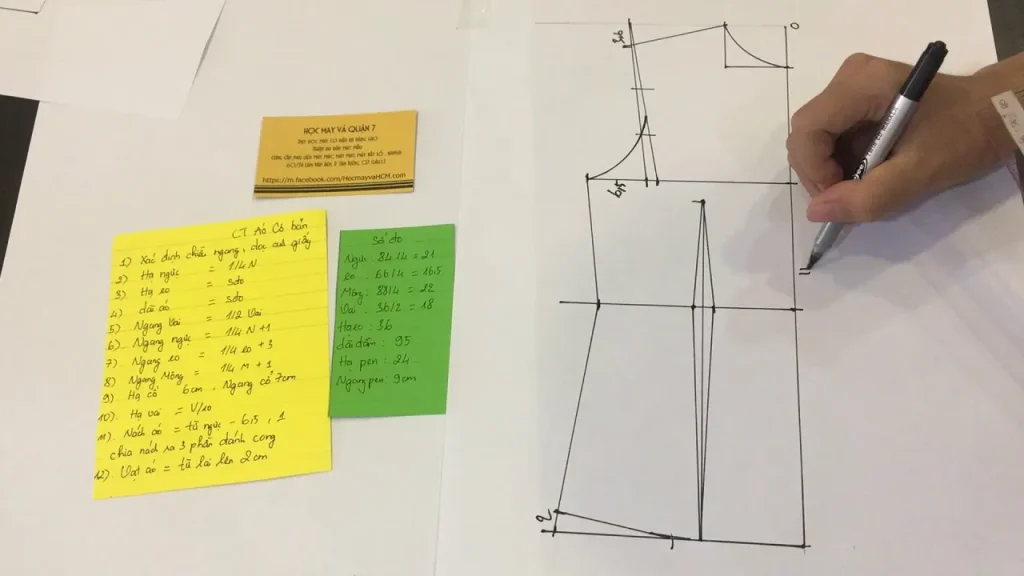 HỌC MAY VÁ QUẬN 7
https://m.facebook.com/HocmayvaHCM.com
CT Áo Cơ bản
1) Xác định chiều ngang, dọc của giấy
2) Hạ ngực = 1/4 N
3) Hạ eo = sđo
4) dài áo = sđo
5) Ngang vai = 1/2 Vai
6) Ngang ngực = 1/4 N + 1
7) Ngang eo = 1/4 eo + 3
8) Ngang Mông = 1/4 M + 1
9) Hạ cổ 6cm, Ngang cổ 7cm
10). Hạ vai = V/10
11). Nách áo = từ ngực - 6,5, 1
chia nách ra 3 phần đánh cong
12). Vạt áo = từ lai lên 2cm
Số đo
Ngực: 84/4 = 21
eo: 66/4 = 16.5
Mông: 88/4 = 22
Vai: 36/2 = 18
Hạ eo: 36
dài đầm: 95
Hạ pen: 24
Ngang pen: 9cm
3,6
6,5
2